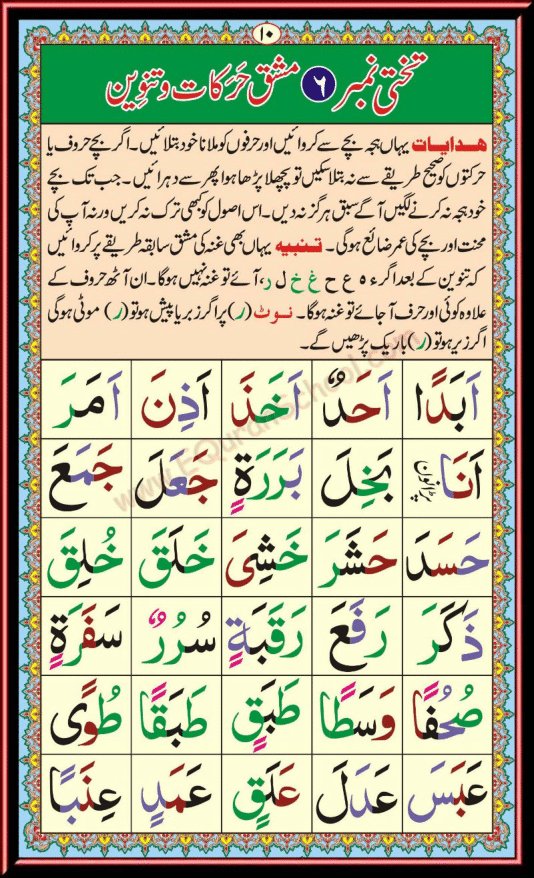 ۱۰
تختی نمبر ۶ مشق حَرَکات و تنوِین
ھدایات یہاں ہجہ بچے سے کروائیں اور حرفوں کو ملانا خود بتلائیں۔ اگر بچے حروف یا
حرکتوں کو صحیح طریقے سے نہ بتلا سکیں تو پچھلا پڑھا ہوا پھر سے دہرائیں۔ جب تک بچے
خود ہجہ نہ کرنے لگیں آگے سبق ہرگز نہ دیں۔ اس اصول کو کبھی ترک نہ کریں ورنہ آپ کی
محنت اور بچے کی عمر ضائع ہوگی۔ تنبیہ یہاں بھی غنہ کی مشق سابقہ طریقے پر کروائیں
کہ تنوین کے بعد اگر ء ہ ع ح غ خ ل ر، آئے تو غنہ نہیں ہوگا۔ ان آٹھ حروف کے
علاوہ کوئی اور حرف آ جائے تو غنہ ہوگا۔ نوٹ (ر) پر اگر زبر یا پیش ہو تو (ر) موٹی ہوگی
اگر زیر ہو تو (ر) باریک پڑھیں گے۔
اَبَدًا اَحَدٌ اَخَذَ اَذِنَ اَمَرَ
اَنَا پڑا نون بَخِلَ بَرَرَةٍ جَعَلَ جَمَعَ
حَسَدَ حَشَرَ خَشِىَ خَلَقَ خُلِقَ
ذَكَرَ رَفَعَ رَقَبَةٍ سُرُرٌ سَفَرَةٍ
صُحُفًا وَسَطًا طَبَقٍ طَبَقًا طُوًى
عَبَسَ عَدَلَ عَلَقٍ عَمَدٍ عِنَبًا
www.EQuranSchool.com